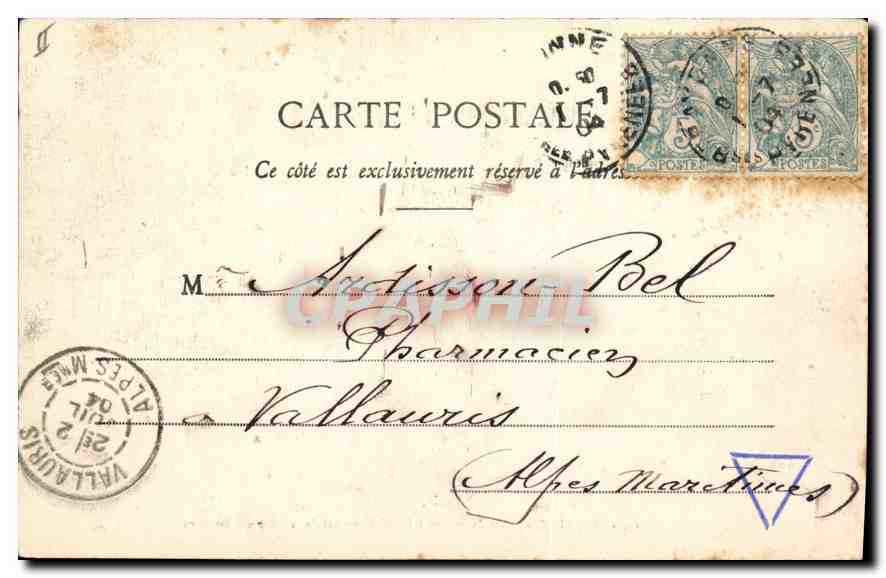 CARTE POSTALE
Ce côté est exclusivement réservé à l'adres
POSTES
POSTES
M Ardisson-Bel
Pharmacien
à Vallauris
(Alpes Maritimes)
VALLAURIS
2E/ 2
JUIL
04
ALPES MMES
CPAPHIL